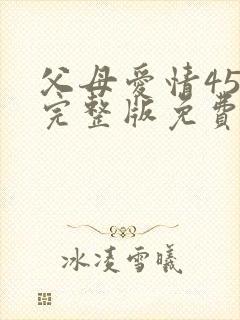 父母爱情45
完整版免费
冰凌雪曦